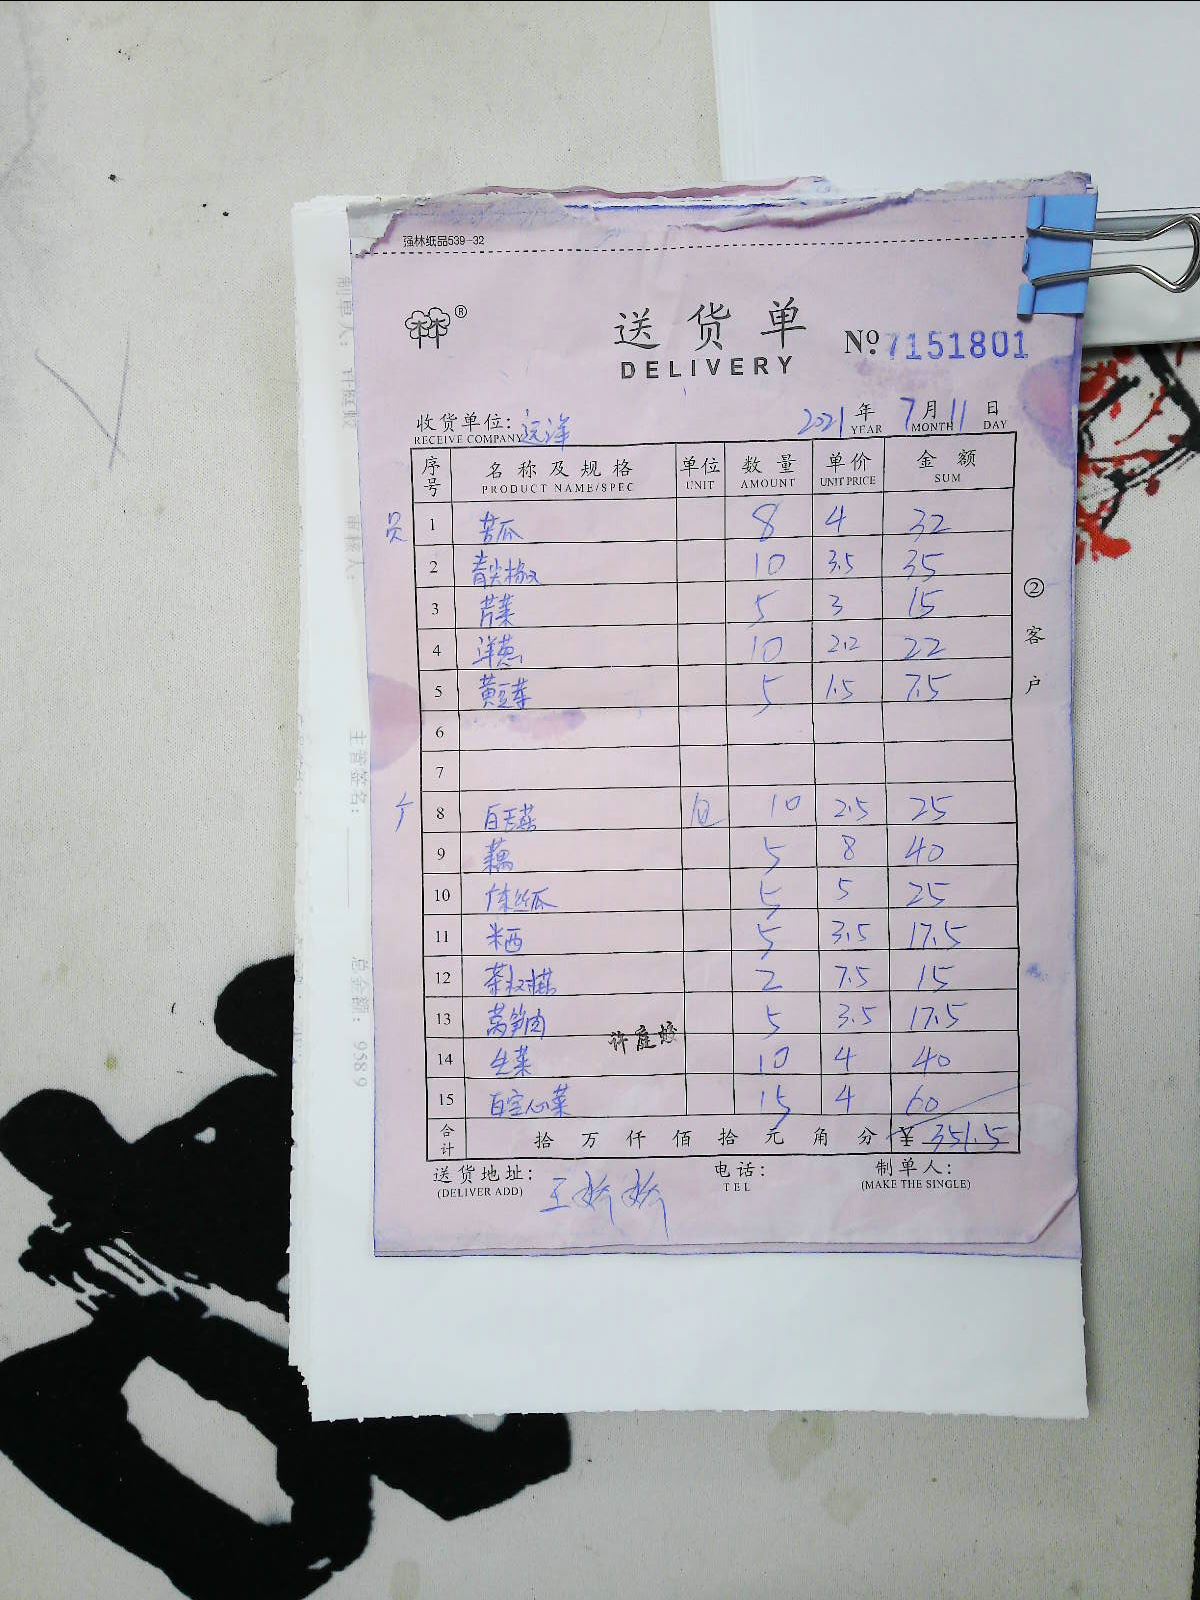 强林纸品539-32
林林®
送货单
DELIVERY
№ 7151801
收货单位: 远洋 2021 年 7 月 11 日
RECEIVE COMPANY YEAR MONTH DAY
序号 名称及规格 单位 数量 单价 金额
PRODUCT NAME/SPEC UNIT AMOUNT UNIT PRICE SUM
员 1 苦瓜 8 4 32
2 青尖椒 10 3.5 35
3 芹菜 5 3 15
4 洋葱 10 2.2 22
5 黄豆芽 5 1.5 7.5
6
7
个 8 10 2.5 25
9 藕 5 8 40
10 丝瓜 5 5 25
11 米西 5 3.5 17.5
12 茶树菇 2 7.5 15
13 莴笋肉 5 3.5 17.5
许庭蛟
14 生菜 10 4 40
15 白空心菜 15 4 60
合计 拾 万 仟 佰 拾 元 角 分 ¥ 351.5
送货地址: 电话: 制单人:
(DELIVER ADD) TEL (MAKE THE SINGLE)
②客户
制单人:
审核人:
主管签名:
总金额: 958.9